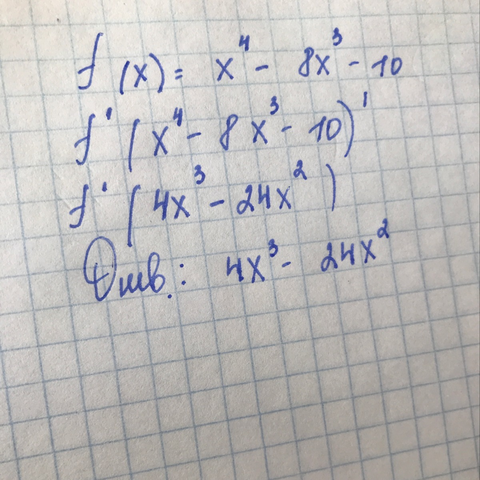 f(x) = x⁴ - 8x³ - 10
f'(x⁴ - 8x³ - 10)'
f'(4x³ - 24x²)
Отв.: 4x³ - 24x²